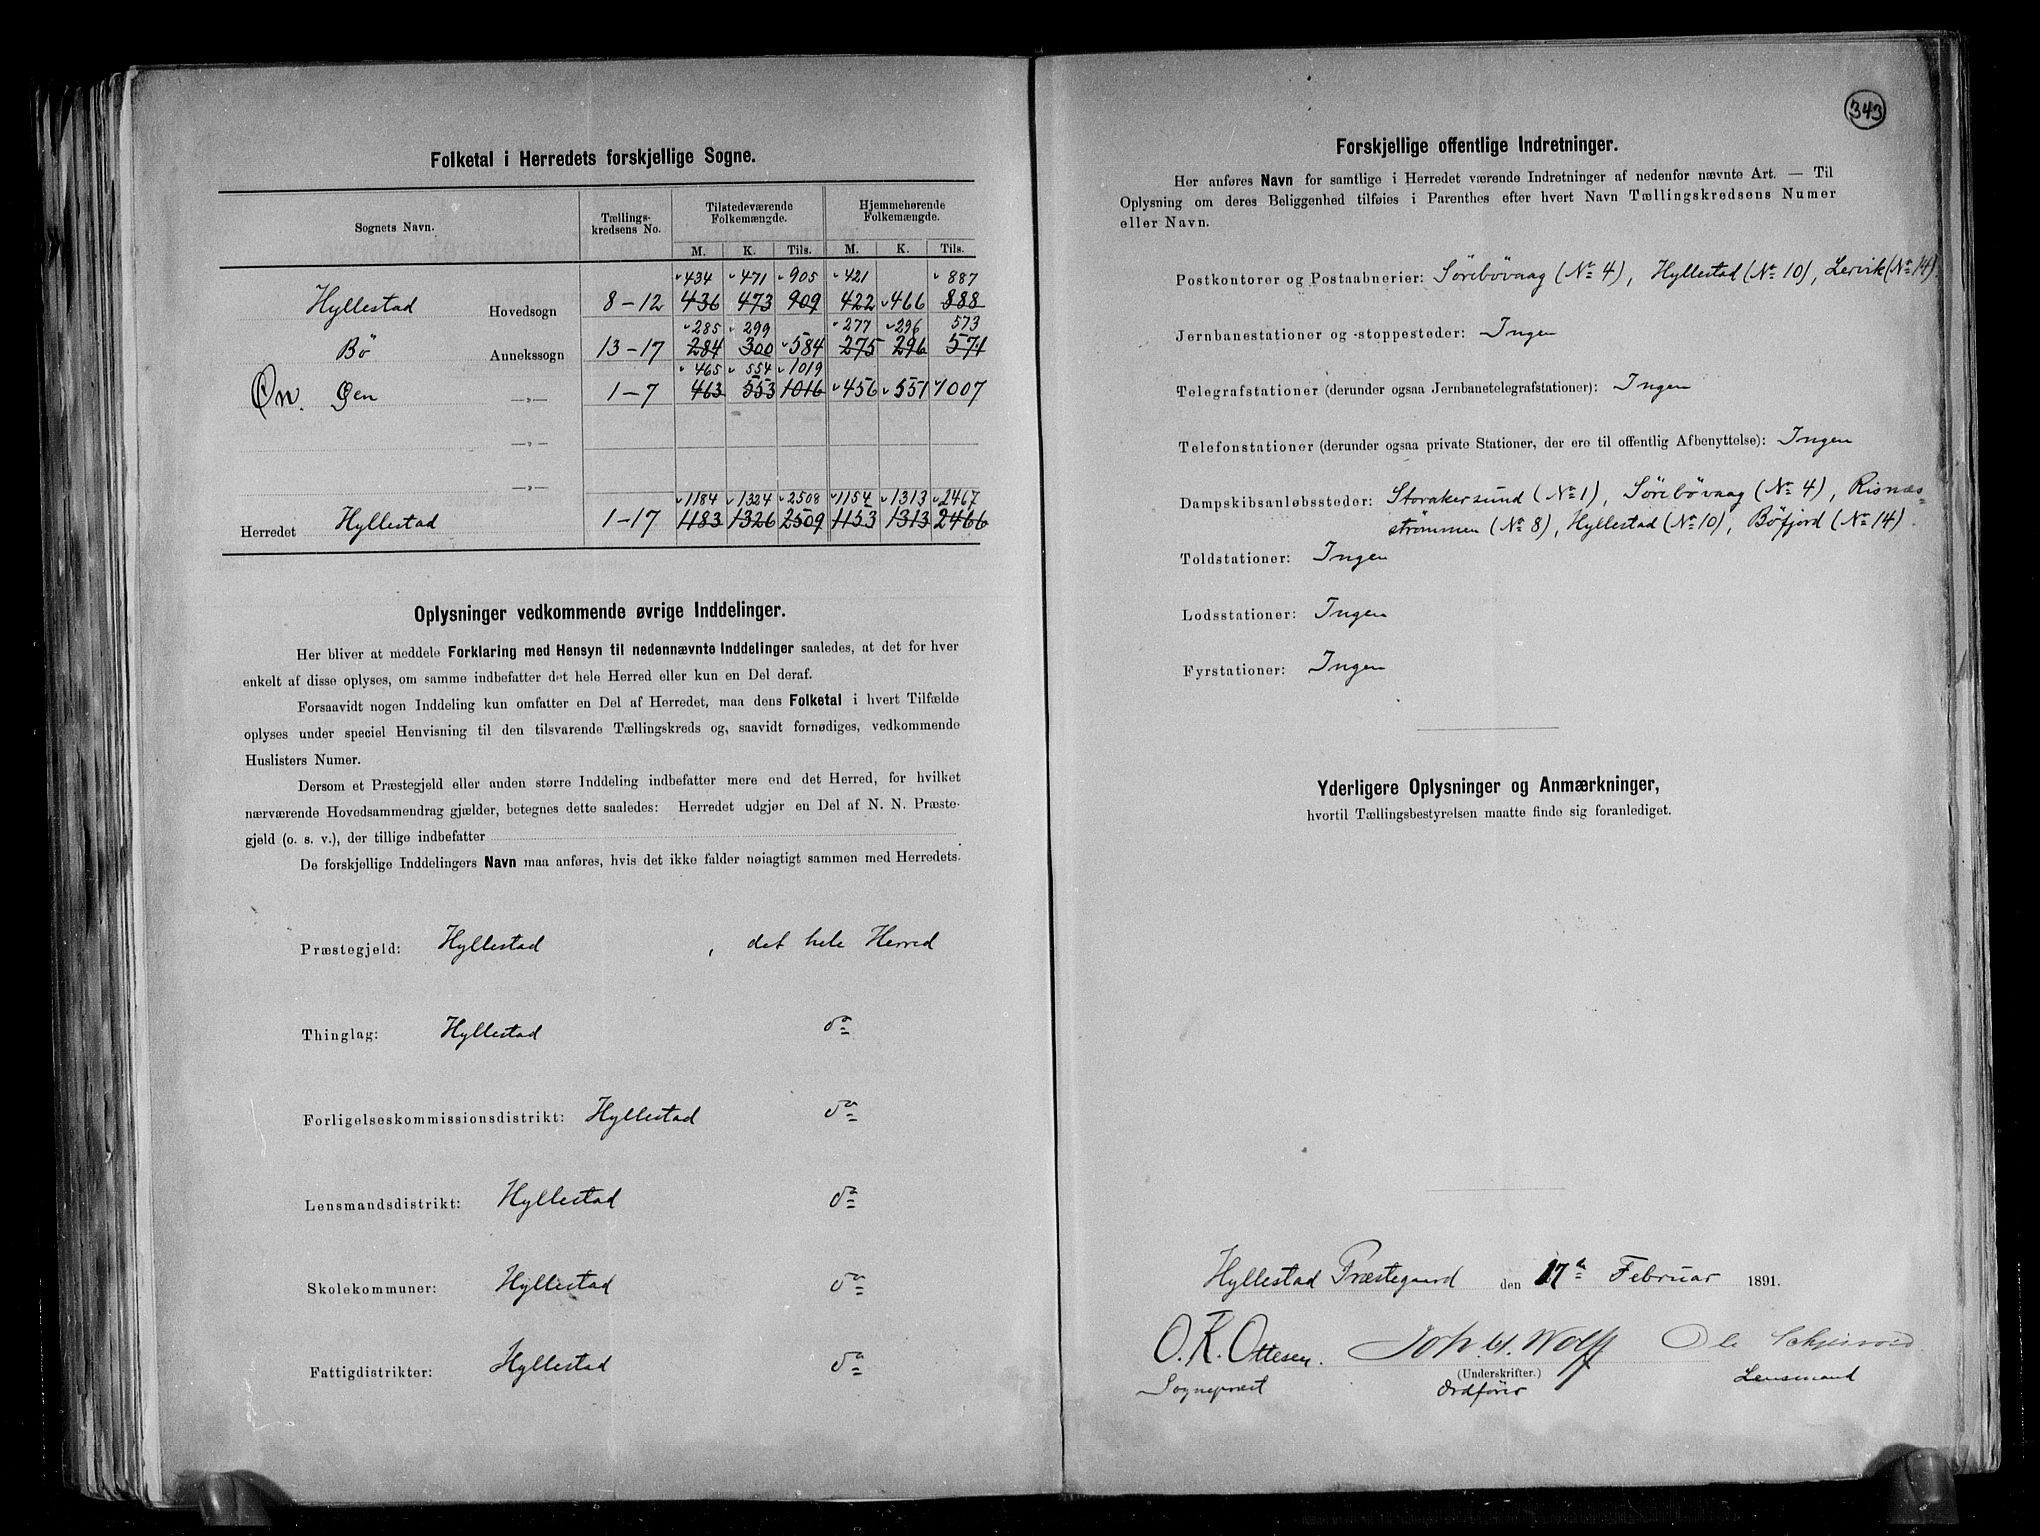 Folketal i Herredets forskjellige Sogne.
Sognets Navn. Tællings-kredsens No. Tilstedeværende Folkemængde. Hjemmehørende Folkemængde.
M. K. Tils. M. K. Tils.
434 471 905 421 887
Hyllestad Hovedsogn 8-12 436 473 909 422 466 888
285 299 277 296 573
Bö Annekssogn 13-17 284 300 584 275 296 571
465 554 1019
Øn. Øen —„— 1-7 463 553 1016 456 551 1007
—„—
—„—
1184 1324 2508 1154 1313 2467
Herredet Hyllestad 1-17 1183 1326 2509 1153 1313 2466
Oplysninger vedkommende øvrige Inddelinger.
Her bliver at meddele Forklaring med Hensyn til nedennævnte Inddelinger saaledes, at det for hver
enkelt af disse oplyses, om samme indbefatter det hele Herred eller kun en Del deraf.
Forsaavidt nogen Inddeling kun omfatter en Del af Herredet, maa dens Folketal i hvert Tilfælde
oplyses under speciel Henvisning til den tilsvarende Tællingskreds og, saavidt fornødiges, vedkommende
Huslisters Numer.
Dersom et Præstegjeld eller anden større Inddeling indbefatter mere end det Herred, for hvilket
nærværende Hovedsammendrag gjælder, betegnes dette saaledes: Herredet udgjør en Del af N. N. Præste-
gjeld (o. s. v.), der tillige indbefatter
De forskjellige Inddelingers Navn maa anføres, hvis det ikke falder nøiagtigt sammen med Herredets.
Præstegjeld: Hyllestad, det hele Herred
Thinglag: Hyllestad do
Forligelseskommissionsdistrikt: Hyllestad do
Lensmandsdistrikt: Hyllestad do
Skolekommuner: Hyllestad do
Fattigdistrikter: Hyllestad do
343
Forskjellige offentlige Indretninger.
Her anføres Navn for samtlige i Herredet værende Indretninger af nedenfor nævnte Art. — Til
Oplysning om deres Beliggenhed tilføies i Parenthes efter hvert Navn Tællingskredsens Numer
eller Navn.
Postkontorer og Postaabnerier: Sörebövaag (No 4), Hyllestad (No 10), Lervik (No 14)
Jernbanestationer og -stoppesteder: Ingen
Telegrafstationer (derunder ogsaa Jernbanetelegrafstationer): Ingen
Telefonstationer (derunder ogsaa private Stationer, der ere til offentlig Afbenyttelse): Ingen
Dampskibsanløbssteder: Storakersund (No 1), Sörebövaag (No 4), Risnæs-
strömmen (No 8), Hyllestad (No 10), Böfjord (No 14).
Toldstationer: Ingen
Lodsstationer: Ingen
Fyrstationer: Ingen
Yderligere Oplysninger og Anmærkninger,
hvortil Tællingsbestyrelsen maatte finde sig foranlediget.
Hyllestad Præstegaard den 17de Februar 1891.
O. K. Ottesen. Joh. Wolff Ole
(Underskrifter.)
Sogneprest Ordförer Lensmand